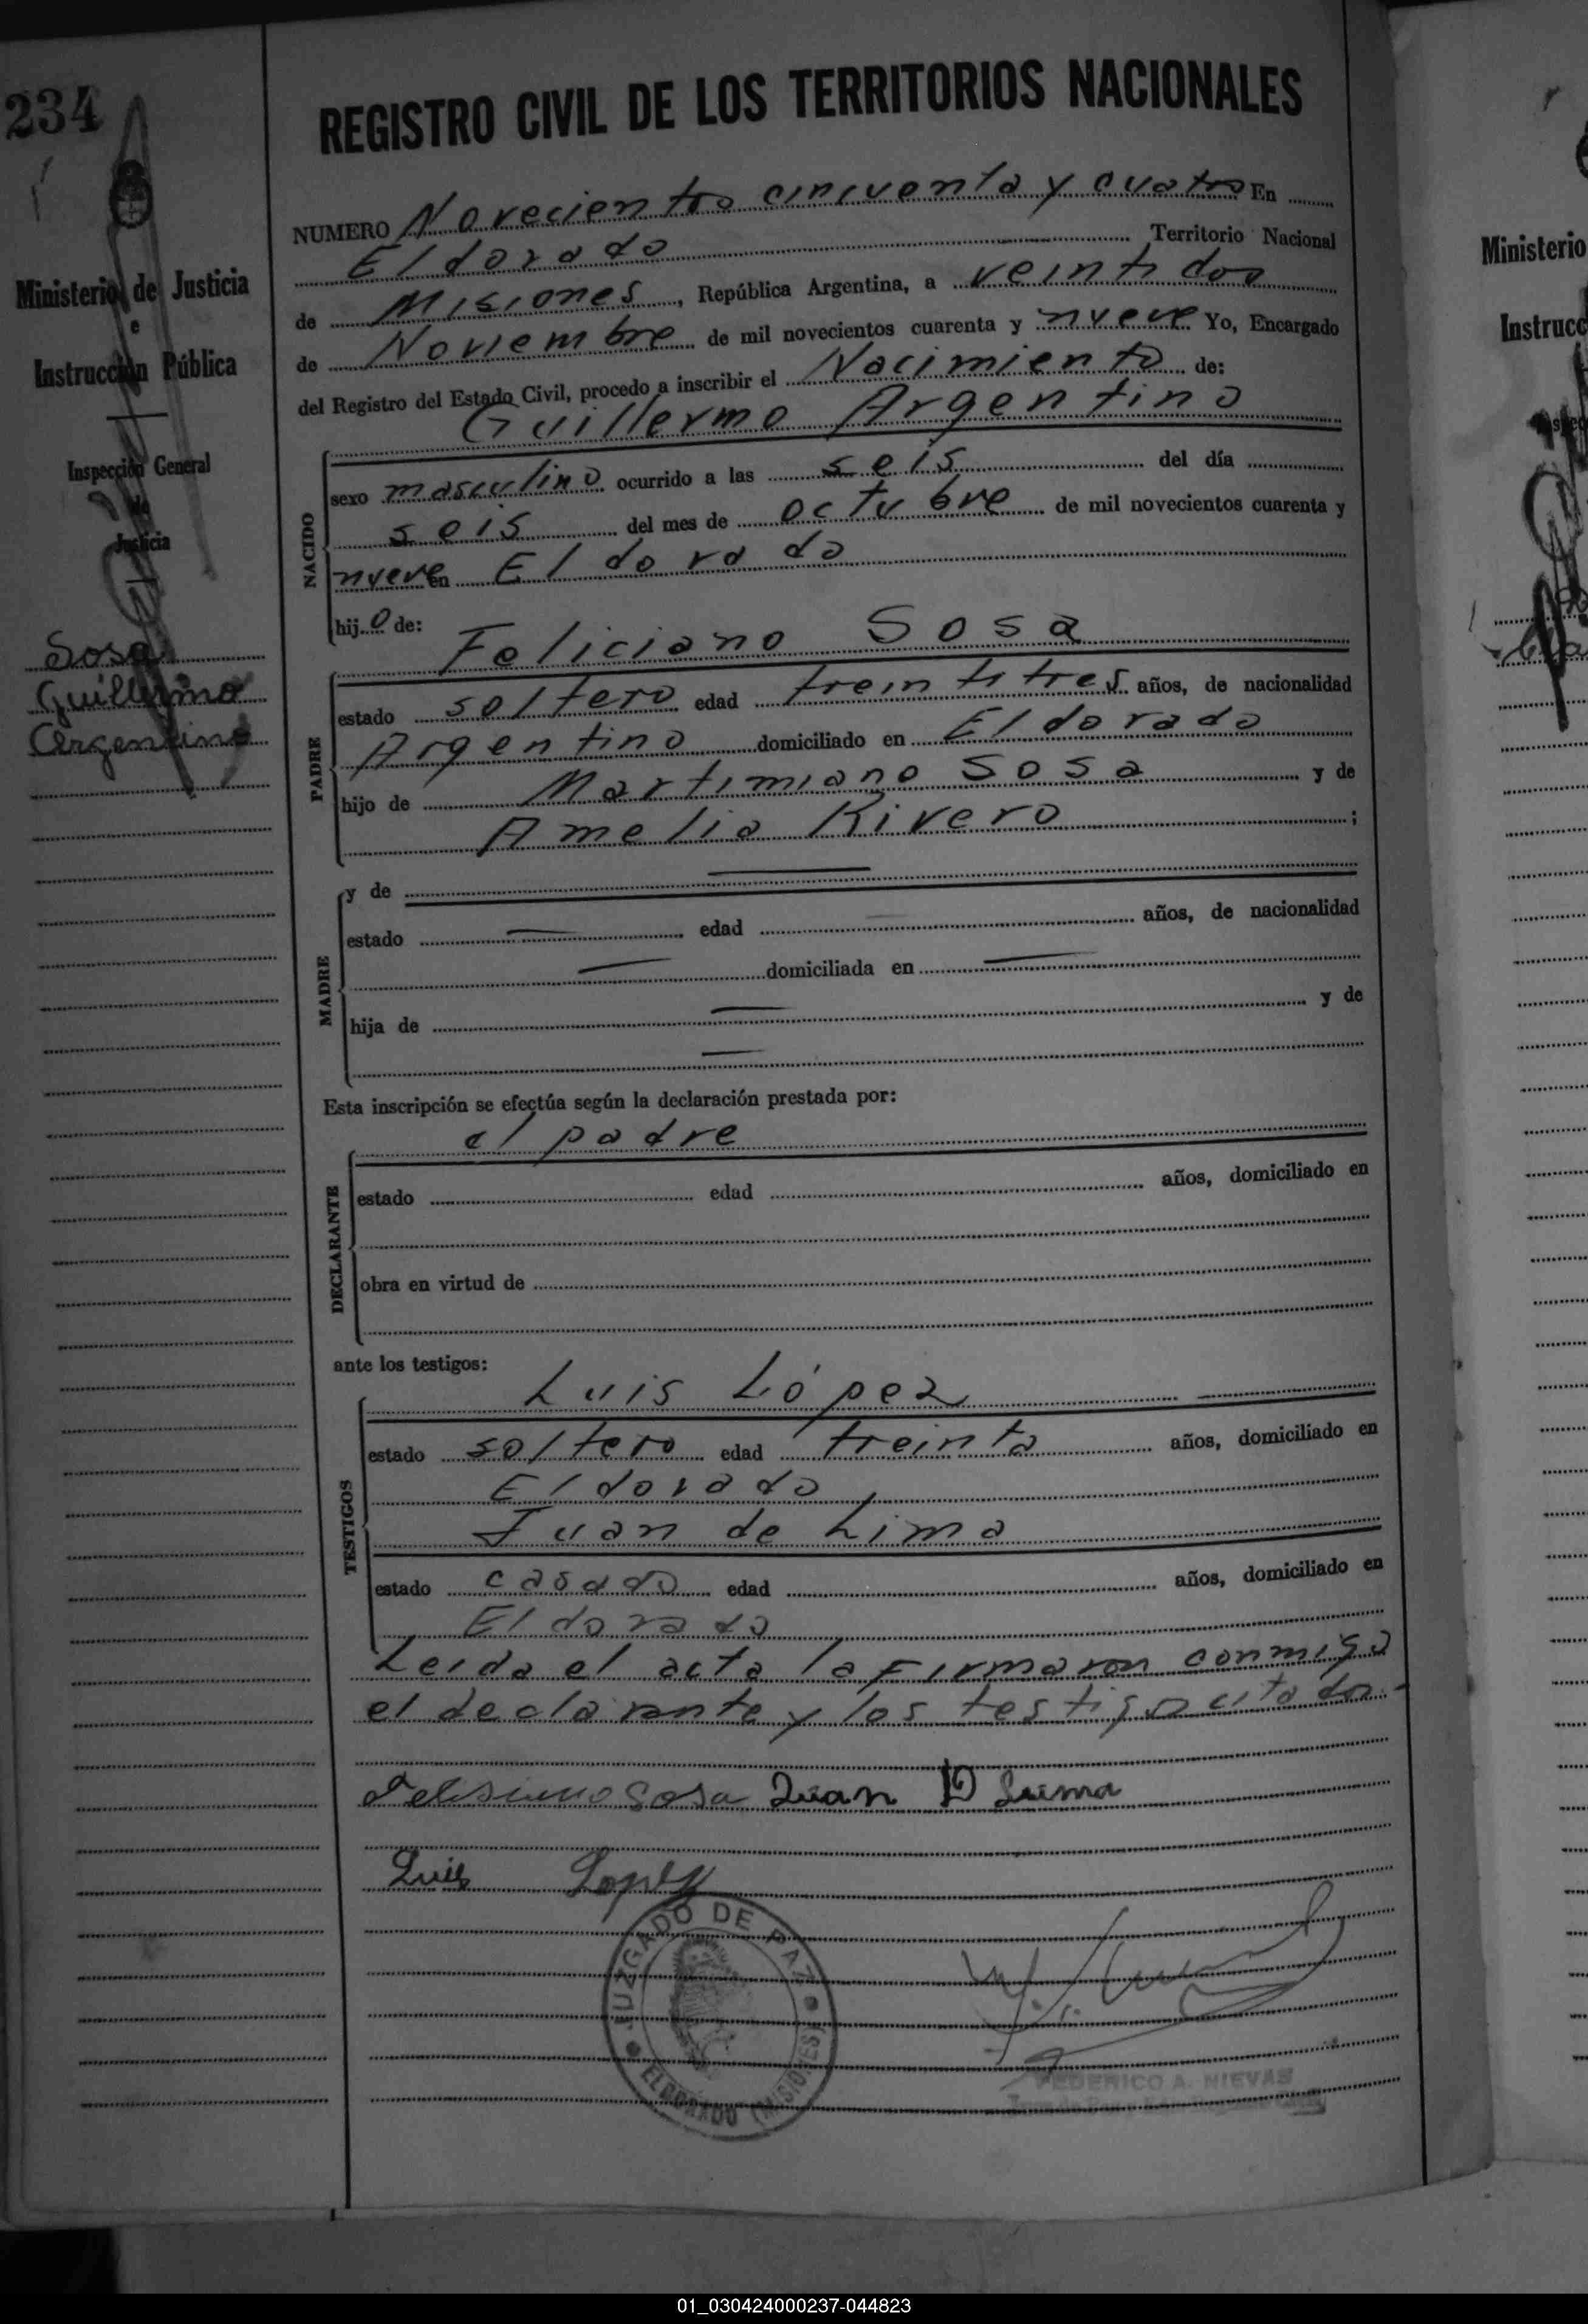 234
Ministerio de Justicia
e
Instrucción Pública
Inspección General
de
Justicia
Sosa
Guillermo
Argentino
REGISTRO CIVIL DE LOS TERRITORIOS NACIONALES
NUMERO Novecientos cincuenta y cuatro En
Eldorado Territorio Nacional
de Misiones, República Argentina, a veintidos
de Noviembre de mil novecientos cuarenta y nueve Yo, Encargado
del Registro del Estado Civil, procedo a inscribir el Nacimiento de:
Guillermo Argentino
NACIDO
sexo masculino ocurrido a las seis del día
seis del mes de octubre de mil novecientos cuarenta y
nueve en Eldorado
hijo de:
Feliciano Sosa
PADRE
estado soltero edad treintitres años, de nacionalidad
Argentino domiciliado en Eldorado
hijo de Martimiano Sosa y de
Amelia Rivero ;
MADRE
y de
estado edad años, de nacionalidad
domiciliada en
hija de y de
Esta inscripción se efectúa según la declaración prestada por:
el padre
DECLARANTE
estado edad años, domiciliado en
obra en virtud de
ante los testigos:
Luis López
TESTIGOS
estado soltero edad treinta años, domiciliado en
Eldorado
Juan de Lima
estado casado edad años, domiciliado en
Eldorado
Leida el acta la firmaron conmigo
el declarante y los testigos citados.-
Sosa Juan D Luima
Luis Lopez
JUZGADO DE PAZ
ELDORADO (MISIONES)
FEDERICO A. NIEVAS
Ministerio
Instrucc
01_030424000237-044823